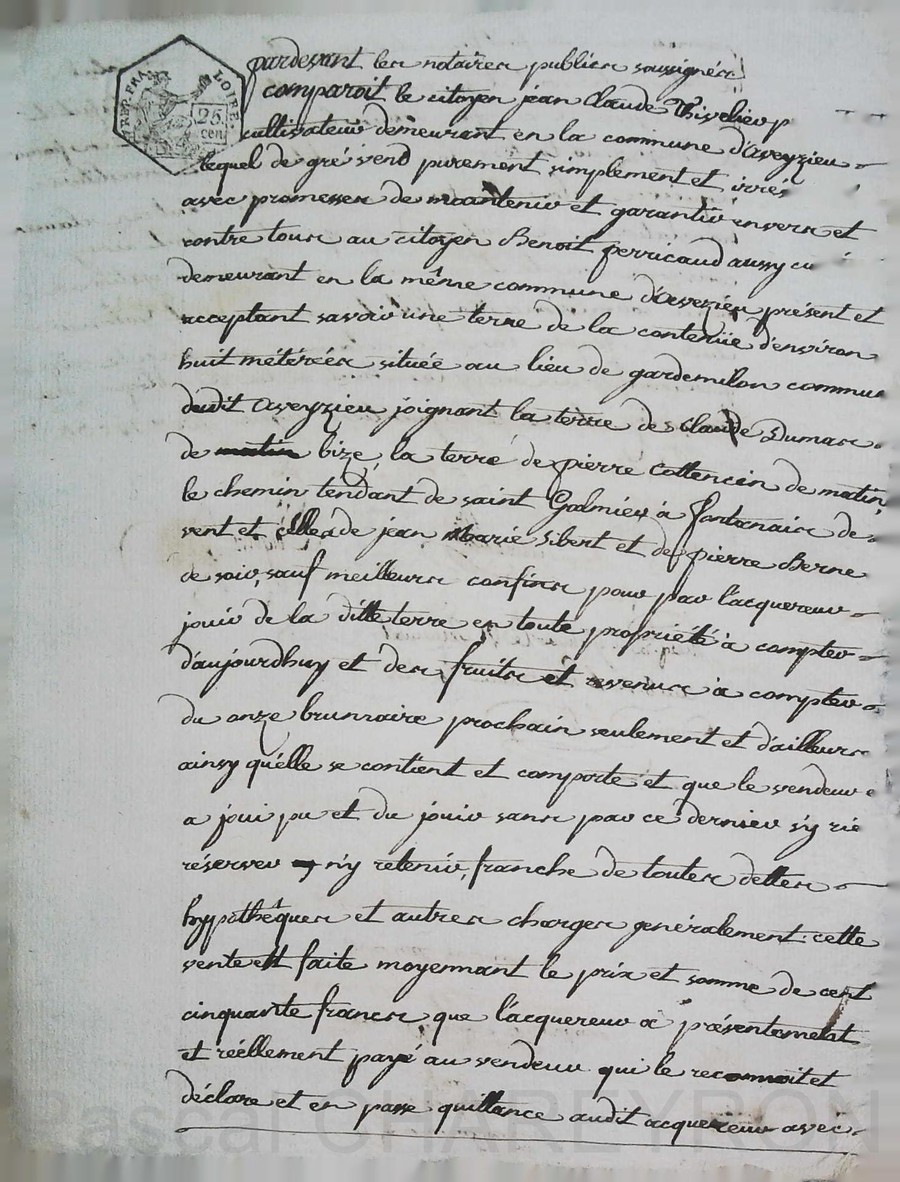 RÉP. FRA. LOIRE
25
cen
pardevant les notaires publics soussignés
comparoit le citoyen jean Claude Thivelier
cultivateur demeurant en la commune d'aveyzieu
lequel de gré vend purement simplement et irrév
avec promesses de maintenir et garantir envers et
contre tous au citoyen Benoit perricaud aussy cu
demeurant en la même commune d'aveyzieu présent et
acceptant savoir une terre de la contenüe d'environ
huit métérées située au lieu de gardemilon commun
dudit aveyzieu joignant la terre de Claude Dumas
de matin bize, la terre de pierre Cottencin de matin,
le chemin tendant de saint Galmier à fontanais de
vent et celles de jean Marie Sibert et de pierre Berne
de soir, sauf meilleurs confins pour par l'acquereur
jouir de la ditte terre en toute propriété à compter
d'aujourdhuy et des fruits et revenus à compter
du onze brumaire prochain seulement et d'ailleurs
ainsy qu'elle se contient et comporte et que le vendeur
a joui pu et du jouir sans par ce dernier s'y rie
réserver n'y retenir, franche de toutes dettes
hypothêques et autres charges généralement: cette
vente est faite moyennant le prix et somme de cent
cinquante francs que l'acquereur a présentemetat
et réellement payé au vendeur qui le reconnoit et
déclare et en passe quittance audit acquereur avec
Pascal CHAREYRON